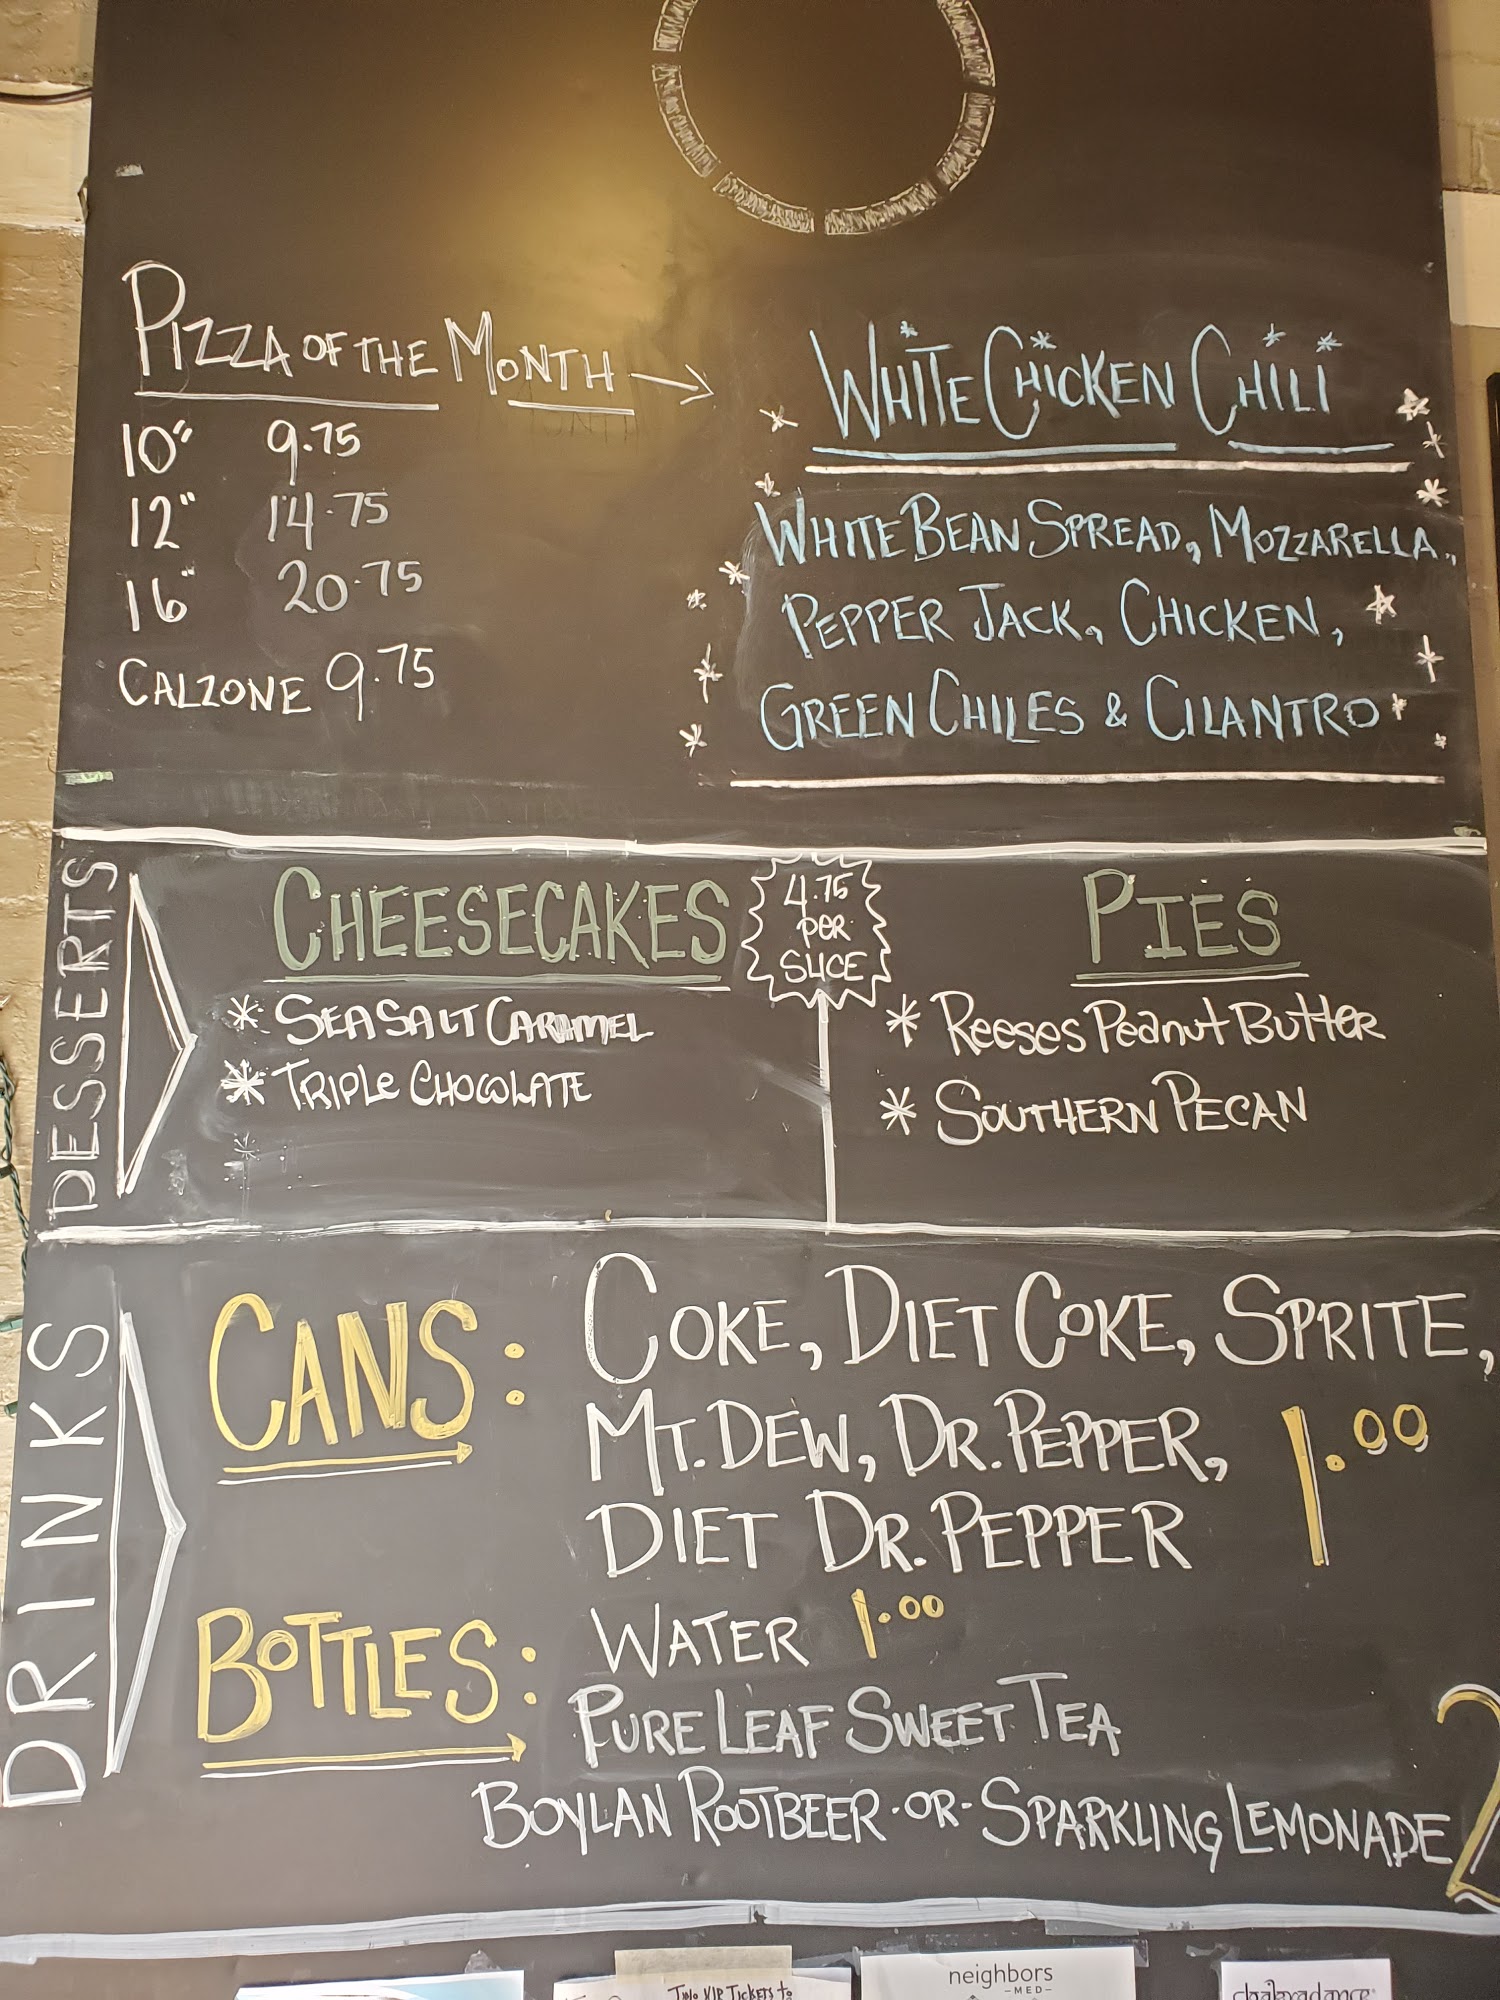 PIZZA OF THE MONTH →
10" 9.75
12" 14.75
16" 20.75
CALZONE 9.75
WHITE CHICKEN CHILI
WHITE BEAN SPREAD, MOZZARELLA,
PEPPER JACK, CHICKEN,
GREEN CHILES & CILANTRO
DESSERTS
CHEESECAKES
* SEA SALT CARAMEL
* TRIPLE CHOCOLATE
*
4.75
PER
SLICE
PIES
* REESES PEANUT BUTTER
* SOUTHERN PECAN
DRINKS
CANS:
COKE, DIET COKE, SPRITE,
MT. DEW, DR. PEPPER,
DIET DR. PEPPER
1.00
BOTTLES:
WATER 1.00
PURE LEAF SWEET TEA
BOYLAN ROOTBEER -OR- SPARKLING LEMONADE
2
TWO VIP TICKETS to
neighbors
-MED-